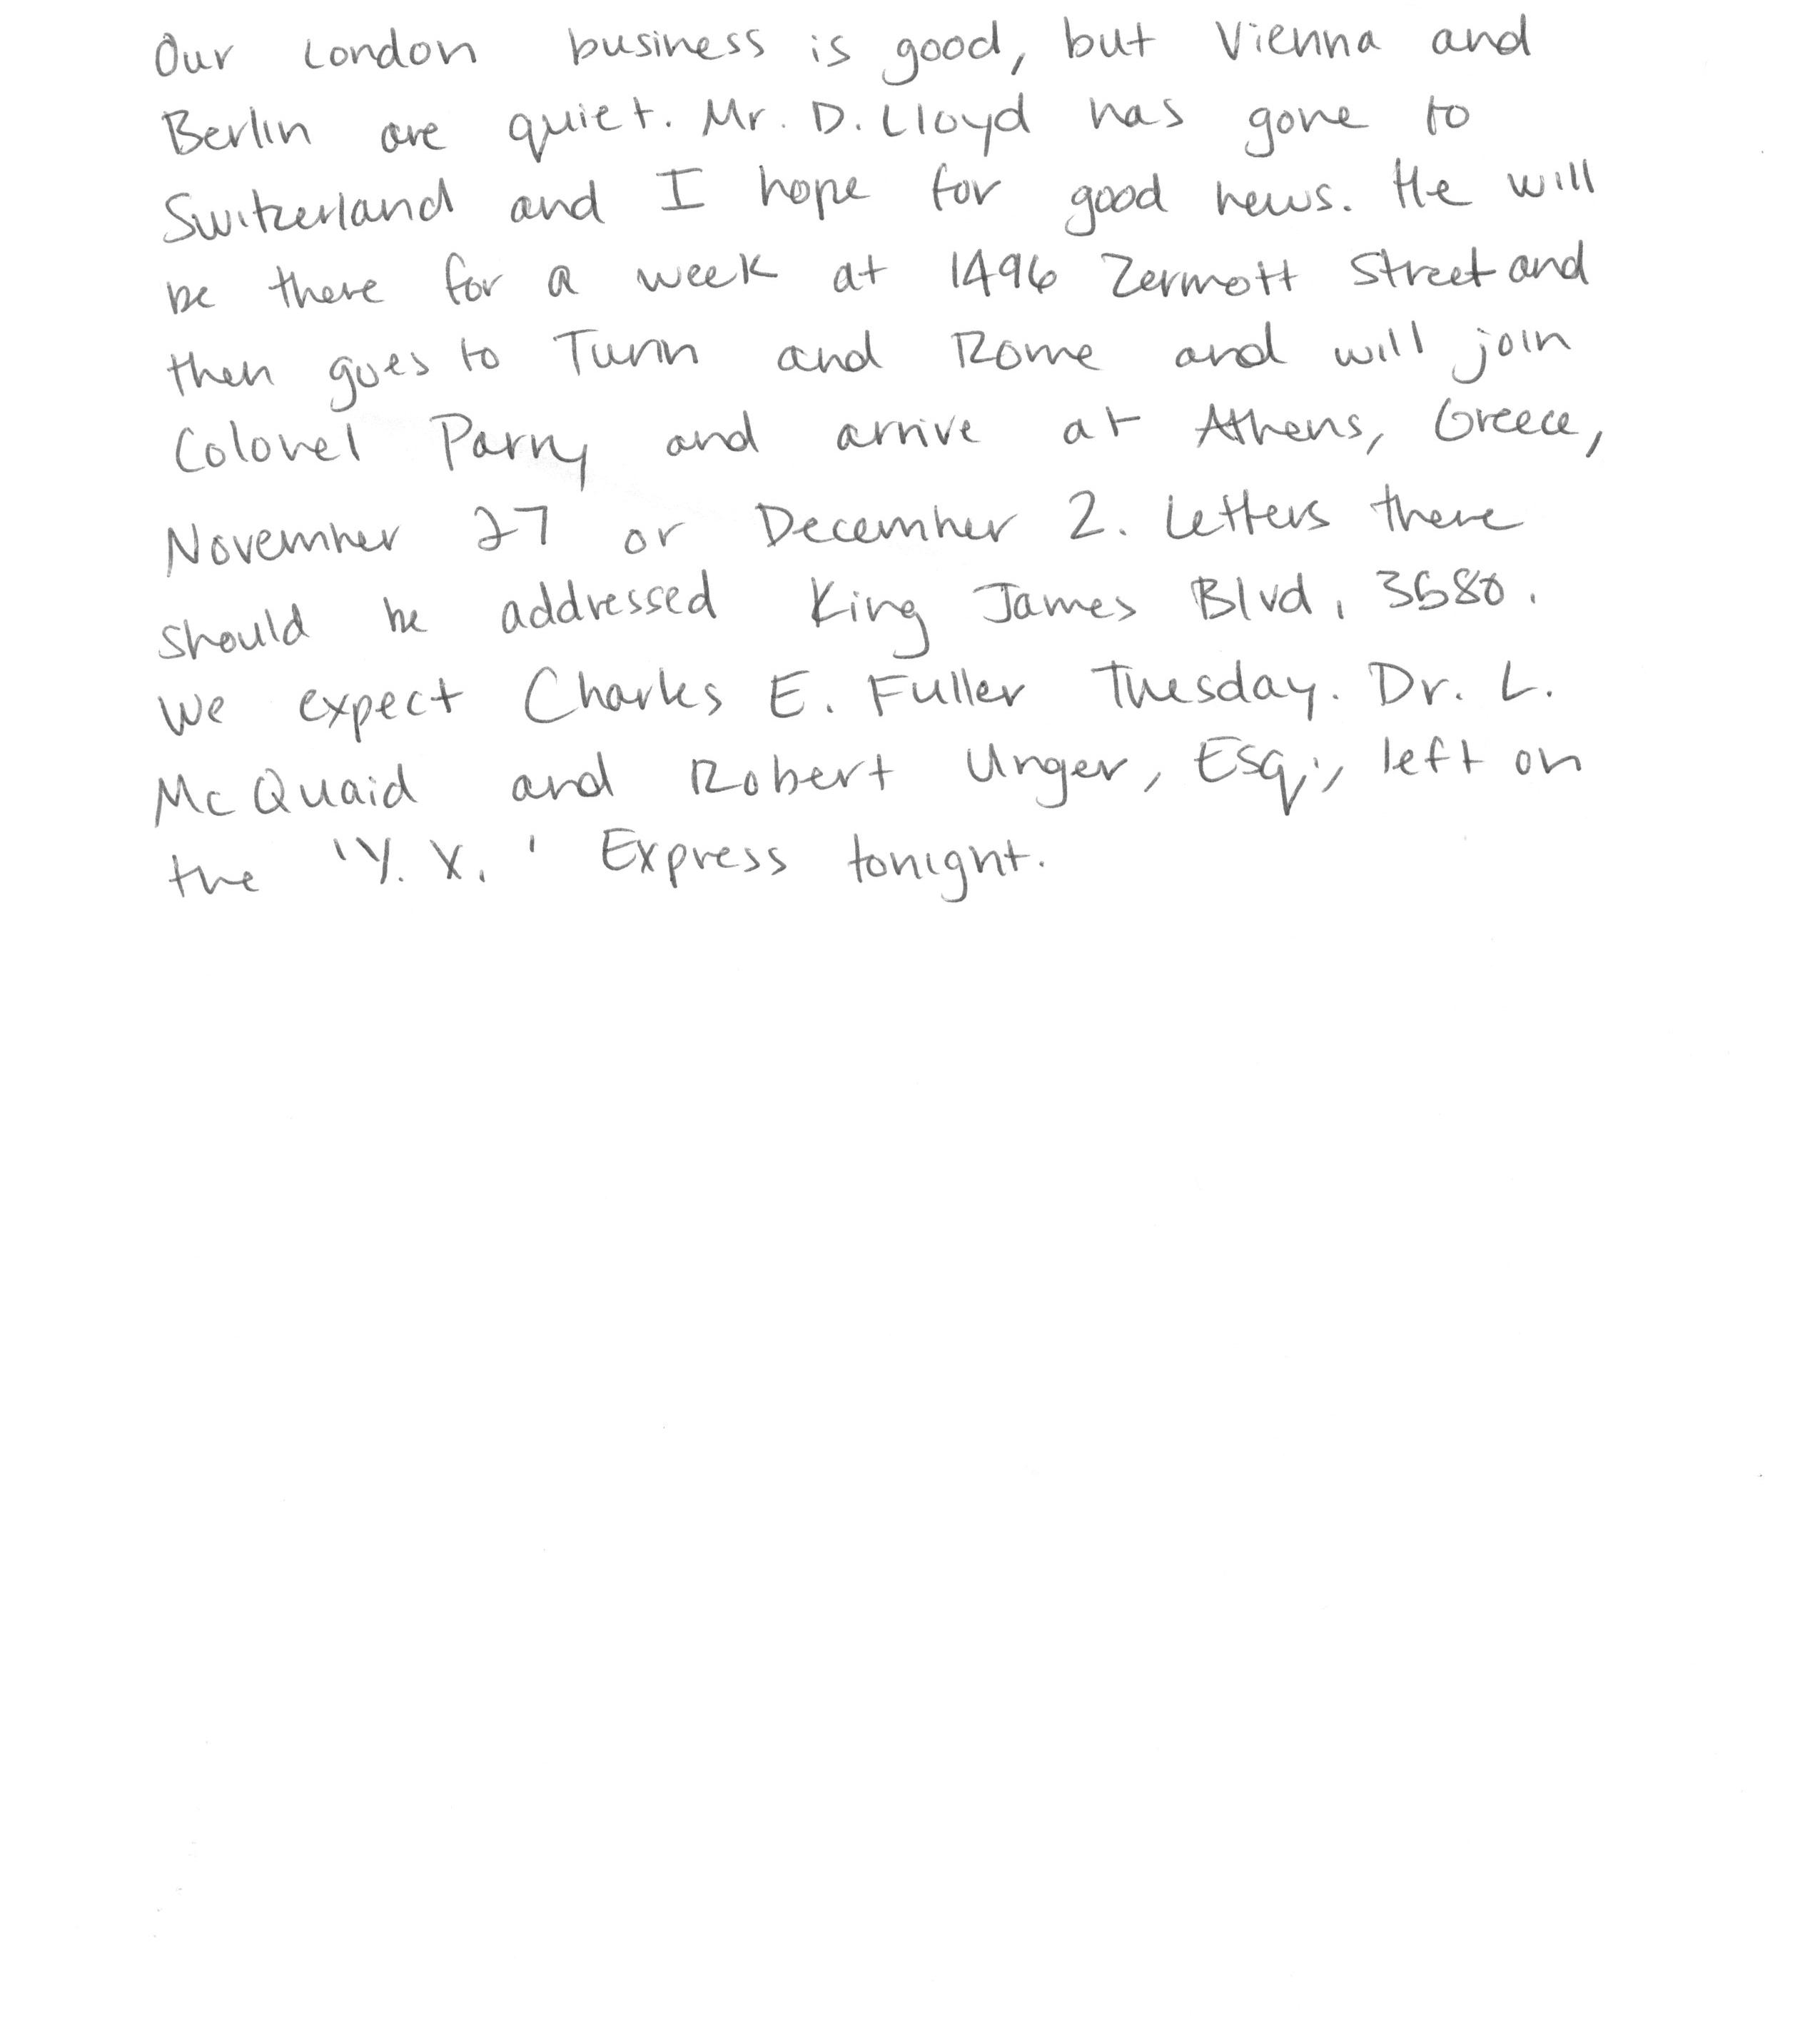 Our London business is good, but Vienna and
Berlin are quiet. Mr. D. Lloyd has gone to
Switzerland and I hope for good news. He will
be there for a week at 1496 Zermott Street and
then goes to Turin and Rome and will join
Colonel Parry and arrive at Athens, Greece,
November 27 or December 2. Letters there
should be addressed King James Blvd. 3580.
We expect Charles E. Fuller Tuesday. Dr. L.
McQuaid and Robert Unger, Esq., left on
the 'Y. X.' Express tonight.